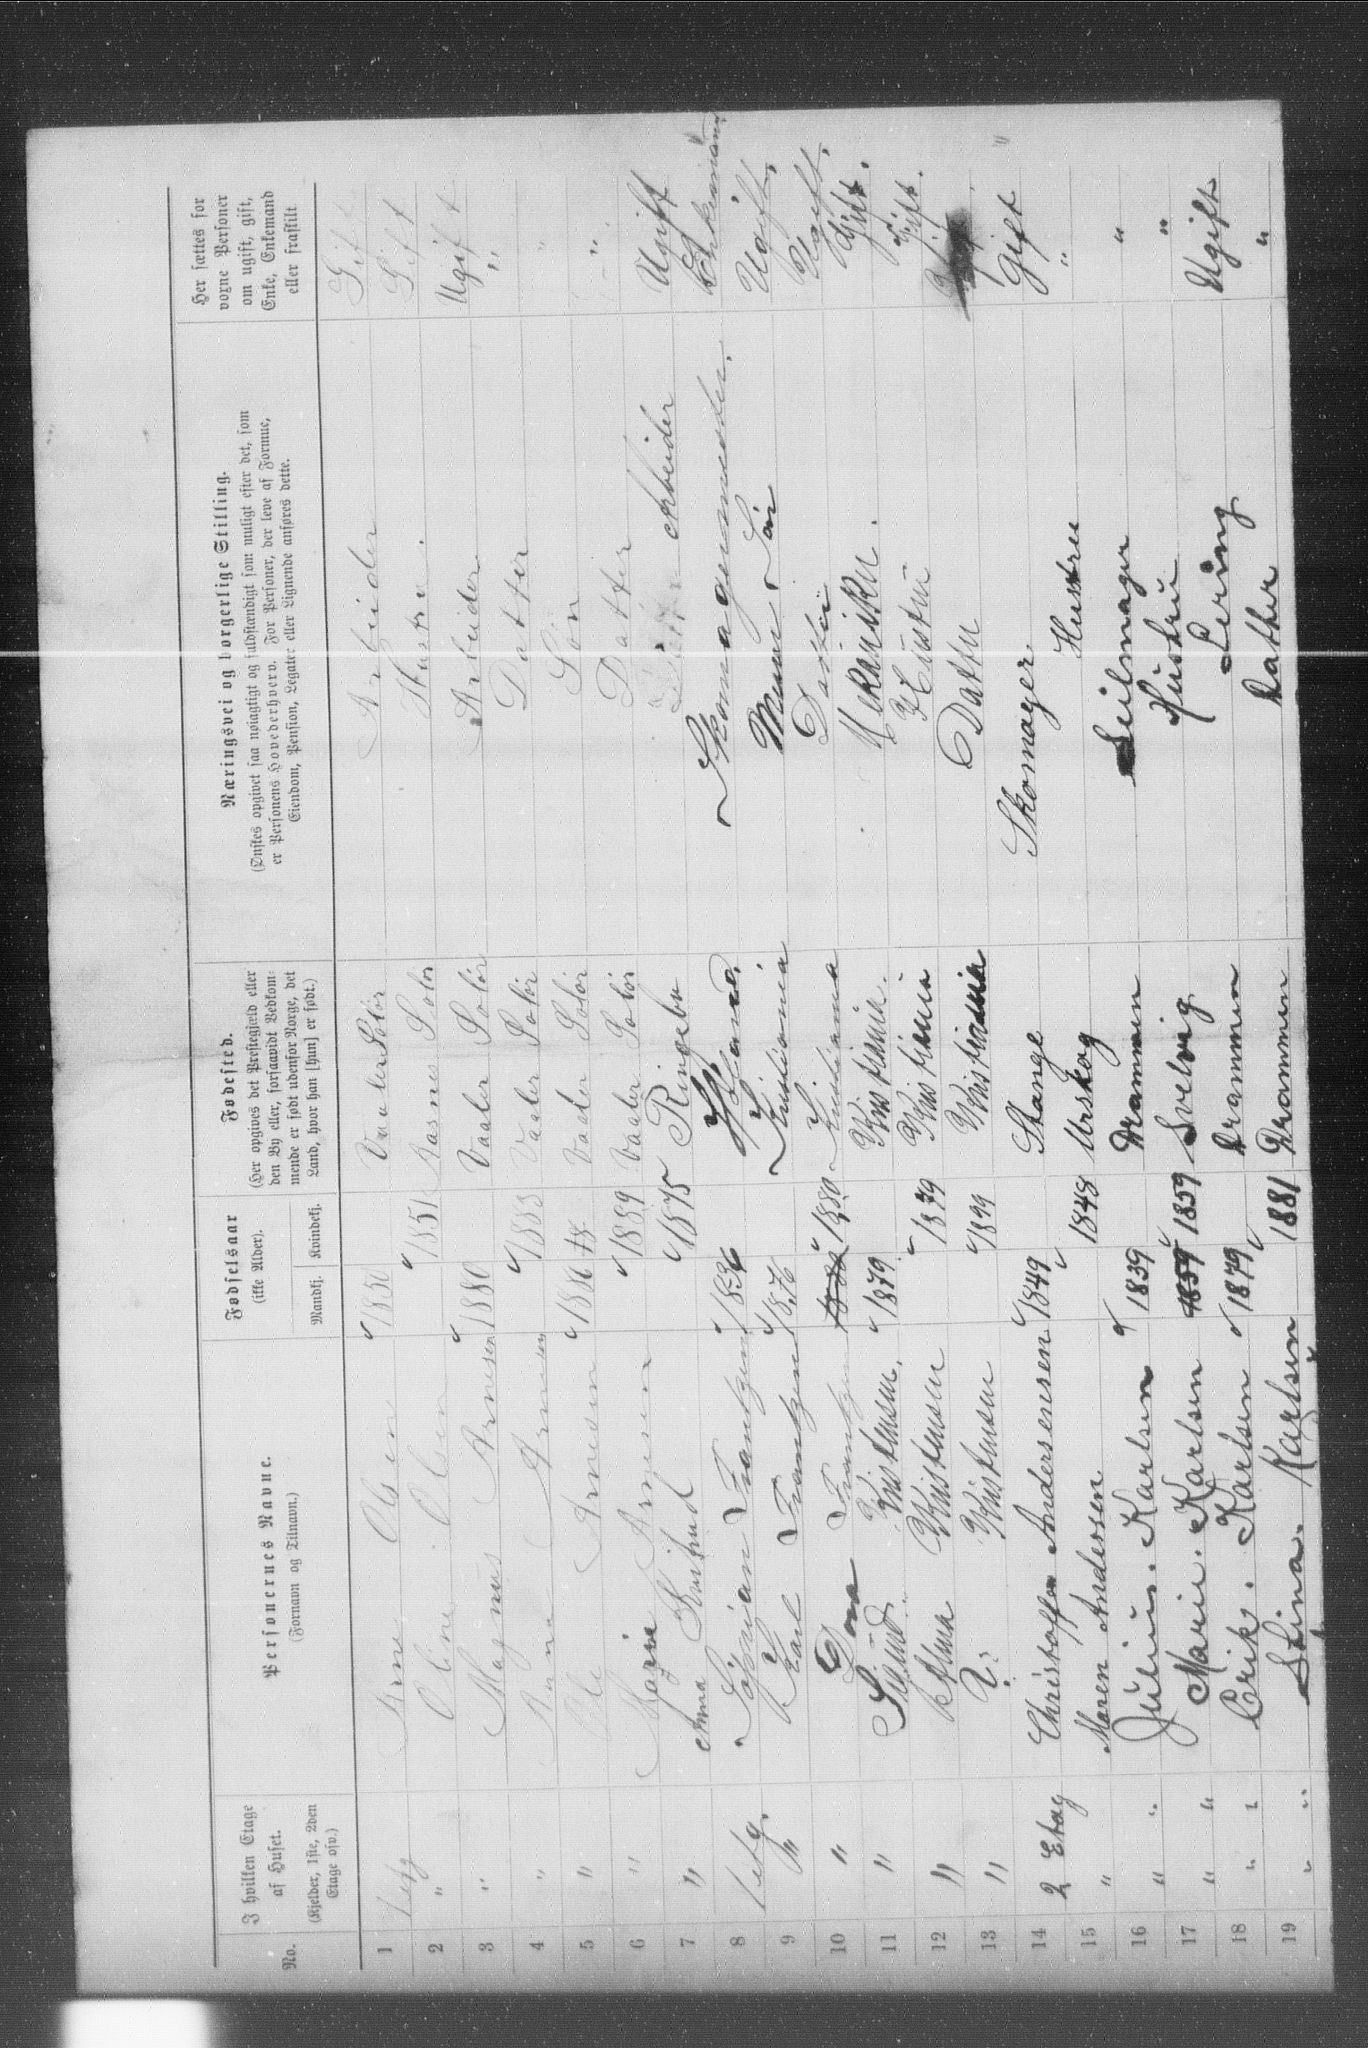 No.
I hvilken Etage af Huset.
(Kjelder, 1ste, 2den Etage osv.)
Personernes Navne.
(Fornavn og Tilnavn.)
Fødselsaar
(ikke Alder).
Mandkj. Kvindekj.
Fødested.
(Her opgives det Præstegjeld eller
den By eller, forsaavidt Vedkom-
mende er født udenfor Norge, det
Land, hvor han [hun] er født.)
Næringsvei og borgerlige Stilling.
(Ønskes opgivet saa nøiagtigt og fuldstændigt som muligt efter det, som
er Personens Hovederhverv. For Personer, der leve af Formue,
Eiendom, Pension, Legater eller Lignende anføres dette.
Her sættes for
voxne Personer
om ugift, gift,
Enke, Enkemand
eller fraskilt
1 1 etg Arne Olsen 1850 Vaaler Solør Arbeider Gift
2 " Oline Olsen 1851 Hasnes Solør Hustru. Gift
3 " Magnus Arnesen 1880 Vaaler Solør Arbeider Ugift
4 " Anna Arnesen 1883 Vaaler Solør Datter "
5 " Ole Arnesen 1886 Vaaler Solør Søn "
6 " Marie Arnesen 1889 Vaaler Solør Datter "
7 " Anna Rustud 1875 Ringebu arbeider Ugift
8 1 etg. Frantzen 1836 Skomagermester. Enkemand
9 " Karl Frantzen 1876 Kristiania Søn Ugift.
10 " Frantzen 1880 Kristiania Datter Ugift.
11 " Kristensen. 1879 Kristiania. Mekaniker. Gift.
12 " Alma Kristensen 1879 Kristiania Hustru Gift.
13 " Kristensen 1899 Kristiania Datter
14 2 Etag Christoffer Andersensen 1849 Stange Skomager Gift
15 " Maren Andersen 1848 Urskog Hustru "
16 " Julius. Karlsen 1839 Drammen Seilmager "
17 " Marie. Karlsen 1859 Svelvig Hustru "
18 " Erik. Karlsen 1879 Drammen Lering Ugift
19 " Stina. Karlsen 1881 Drammen Datter "